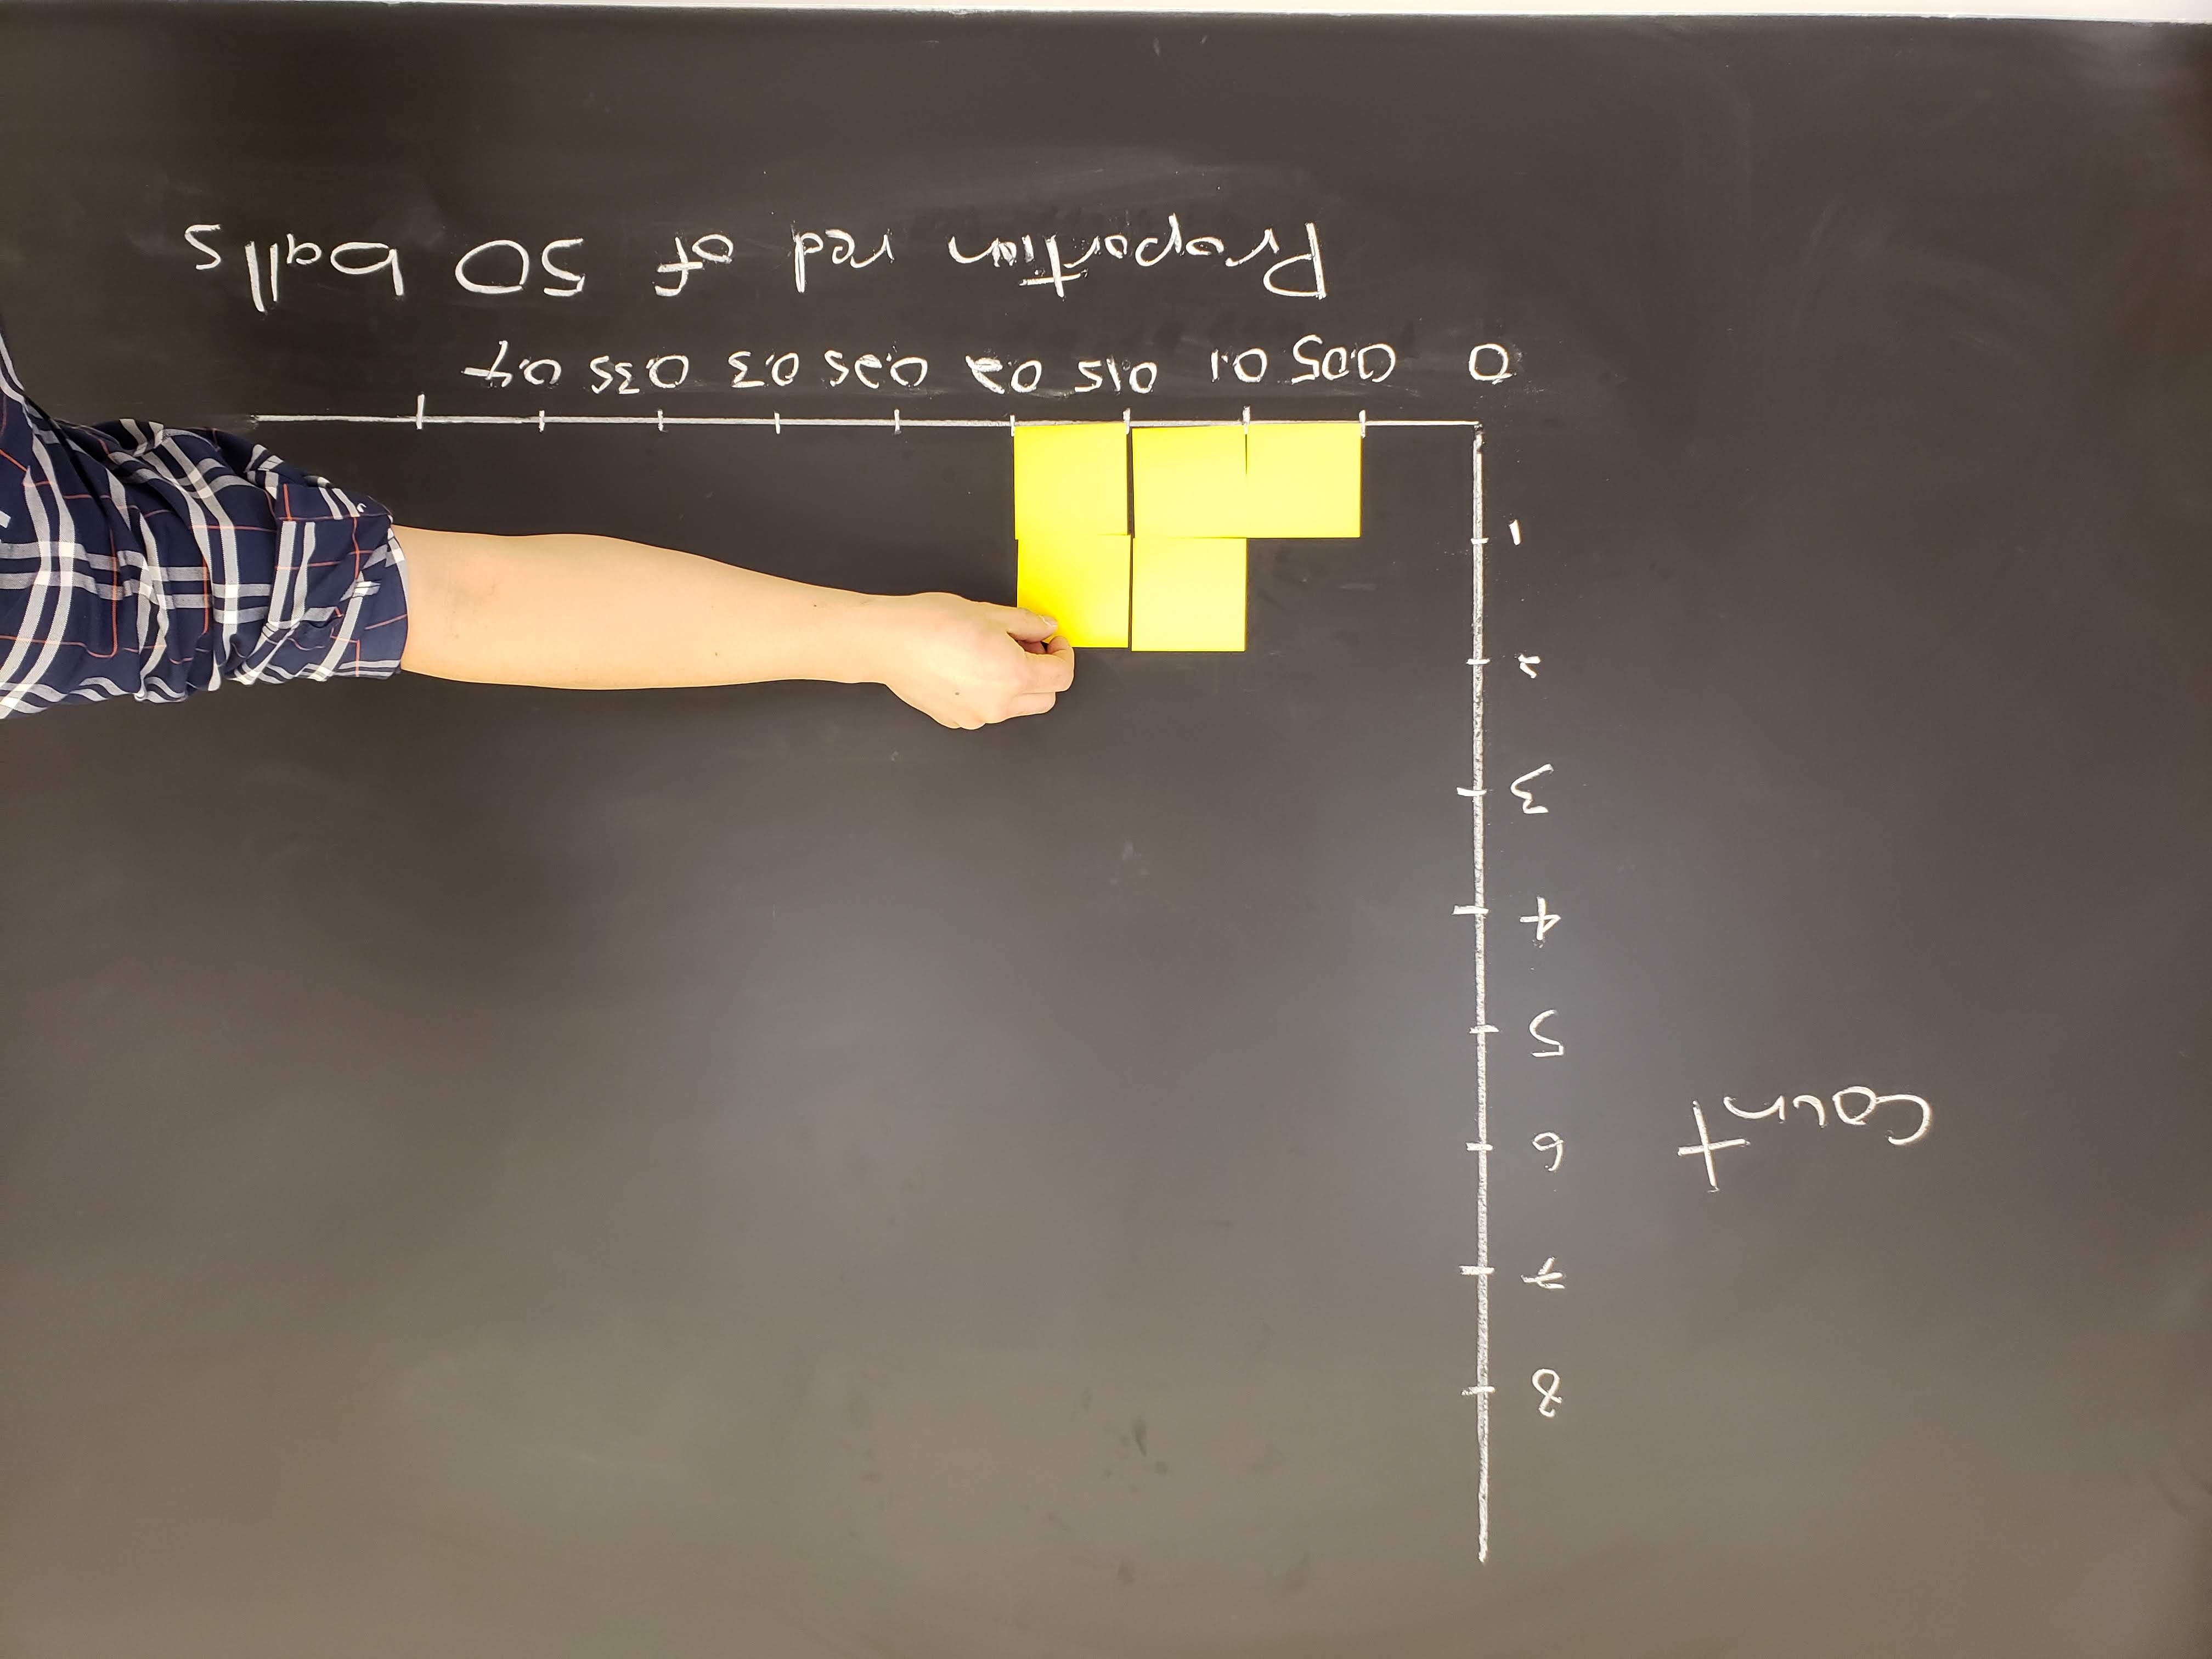 8
7
count
6
5
4
3
2
1
0 0.05 0.1 0.15 0.2 0.25 0.3 0.35 0.4
Proportion red of 50 balls